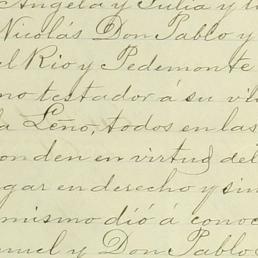 Angela y Julia y l
Nicolás Don Pablo y
el Rio y Pedemonte
no testador á su vi
la Leno, todos en las
onden en virtud del
gar en derecho y sin
mismo dió á conoc
nuel y Don Pablo